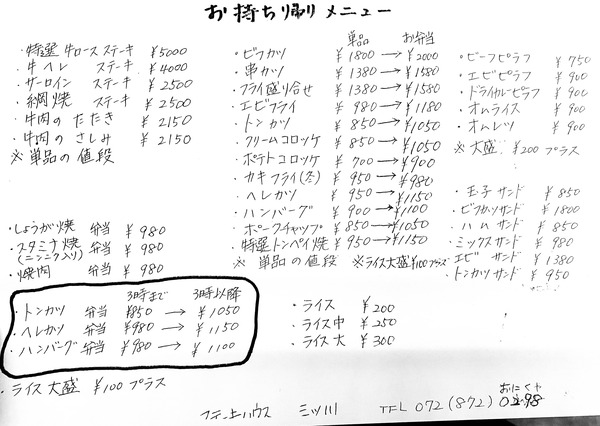 お持ち帰りメニュー
・特選牛ロースステーキ ¥5000
・牛ヘレ ステーキ ¥4000
・サーロイン ステーキ ¥2500
・網焼 ステーキ ¥2500
・牛肉の たたき ¥2150
・牛肉の さしみ ¥2150
※単品の値段
・しょうが焼 弁当 ¥980
・スタミナ焼 弁当 ¥980
(ニンニク入り)
・焼肉 弁当 ¥980
3時まで 3時以降
・トンカツ 弁当 ¥850 → ¥1050
・ヘレカツ 弁当 ¥980 → ¥1150
・ハンバーグ 弁当 ¥980 → ¥1100
・ライス大盛 ¥100プラス
単品 お弁当
・ビフカツ ¥1800 → ¥2000
・串カツ ¥1380 → ¥1580
・フライ盛り合せ ¥1380 → ¥1580
・エビフライ ¥980 → ¥1180
・トンカツ ¥850 → ¥1050
・クリームコロッケ ¥850 → ¥1050
・ポテトコロッケ ¥700 → ¥900
・カキフライ(冬) ¥950 → ¥980
・ヘレカツ ¥950 → ¥1150
・ハンバーグ ¥900 → ¥1100
・ポークチャップ ¥850 → ¥1050
・特選トンペイ焼 ¥950 → ¥1150
※単品の値段 ※ライス大盛¥100プラス
・ライス ¥200
・ライス中 ¥250
・ライス大 ¥300
・ビーフピラフ ¥750
・エビピラフ ¥900
・ドライカレーピラフ ¥900
・オムライス ¥900
・オムレツ ¥900
※大盛 ¥200プラス
・玉子サンド ¥850
・ビフカツサンド ¥1800
・ハムサンド ¥850
・ミックスサンド ¥980
・エビサンド ¥1380
・トンカツサンド ¥950
ステーキハウス ミツ川 TEL 072(872)0298
おにくや